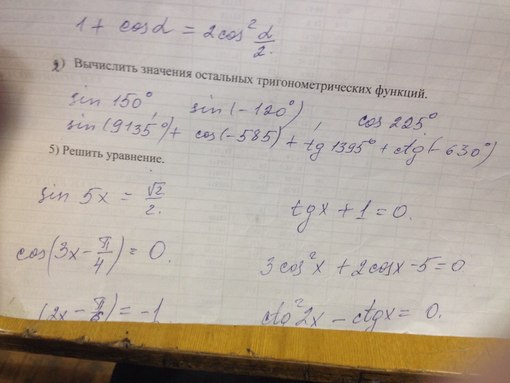 1 + cosα = 2cos² α/2.
2) Вычислить значения остальных тригонометрических функций.
sin 150° sin(-120°), cos 225°
sin(9135°) + cos(-585) + tg 1395° + ctg(-630°)
5) Решить уравнение.
sin 5x = √2/2. tgx + 1 = 0.
cos(3x - π/4) = 0. 3cos²x + 2cosx - 5 = 0
(2x - π/6) = -1. ctg²2x - ctgx = 0.